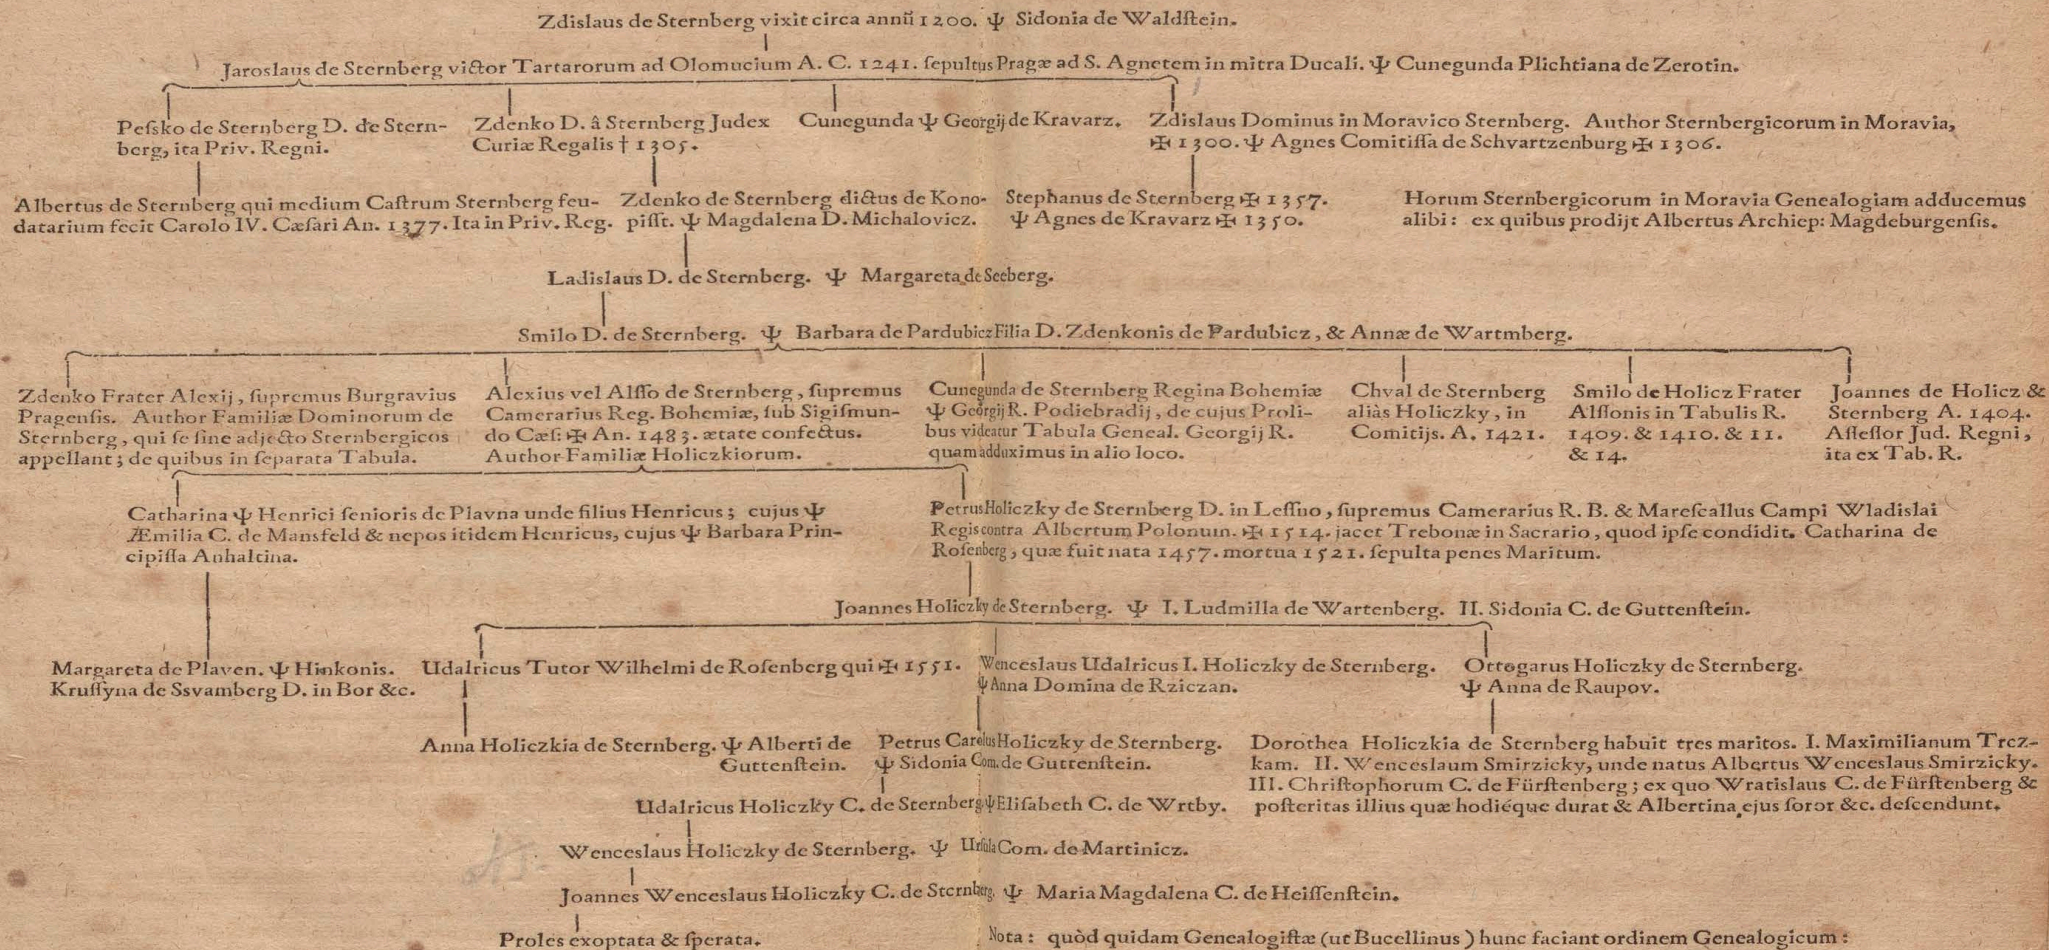 Zdislaus de Sternberg vixit circa annũ 1200. Ψ Sidonia de Waldſtein.
Jaroslaus de Sternberg victor Tartarorum ad Olomucium A. C. 1241. ſepultus Pragæ ad S. Agnetem in mitra Ducali. Ψ Cunegunda Plichtiana de Zerotin.
Peſsko de Sternberg D. de Stern-
berg, ita Priv. Regni.
Zdenko D. â Sternberg Judex
Curiæ Regalis † 1305.
Cunegunda Ψ Georgij de Kravarz.
Zdislaus Dominus in Moravico Sternberg. Author Sternbergicorum in Moravia,
✠ 1300. Ψ Agnes Comitiſſa de Schvartzenburg ✠ 1306.
Albertus de Sternberg qui medium Caſtrum Sternberg feu-
datarium fecit Carolo IV. Cæſari An. 1377. Ita in Priv. Reg.
Zdenko de Sternberg dictus de Kono-
piſſt. Ψ Magdalena D. Michalovicz.
Stephanus de Sternberg ✠ 1357.
Ψ Agnes de Kravarz ✠ 1350.
Horum Sternbergicorum in Moravia Genealogiam adducemus
alibi: ex quibus prodijt Albertus Archiep: Magdeburgenſis.
Ladislaus D. de Sternberg. Ψ Margareta de Seeberg.
Smilo D. de Sternberg. Ψ Barbara de Pardubicz Filia D. Zdenkonis de Pardubicz, & Annæ de Wartmberg.
Zdenko Frater Alexij, ſupremus Burgravius
Pragenſis. Author Familiæ Dominorum de
Sternberg, qui ſe ſine adjecto Sternbergicos
appellant; de quibus in ſeparata Tabula.
Alexius vel Alſſo de Sternberg, ſupremus
Camerarius Reg. Bohemiæ, ſub Sigiſmun-
do Cæſ: ✠ An. 1483. ætate confectus.
Author Familiæ Holiczkiorum.
Cunegunda de Sternberg Regina Bohemiæ
Ψ Georgij R. Podiebradij, de cujus Proli-
bus videatur Tabula Geneal. Georgij R.
quam adduximus in alio loco.
Chval de Sternberg
aliàs Holiczky, in
Comitijs. A. 1421.
Smilo de Holicz Frater
Alſſonis in Tabulis R.
1409. & 1410. & 11.
& 14.
Joannes de Holicz &
Sternberg A. 1404.
Aſſeſſor Jud. Regni,
ita ex Tab. R.
Catharina Ψ Henrici ſenioris de Plavna unde filius Henricus; cujus Ψ
Æmilia C. de Mansfeld & nepos itidem Henricus, cujus Ψ Barbara Prin-
cipiſſa Anhaltina.
Petrus Holiczky de Sternberg D. in Leſſno, ſupremus Camerarius R. B. & Mareſcallus Campi Wladislai
Regis contra Albertum Polonum. ✠ 1514. jacet Trebonæ in Sacrario, quod ipſe condidit. Catharina de
Roſenberg, quæ fuit nata 1457. mortua 1521. ſepulta penes Maritum.
Joannes Holiczky de Sternberg. Ψ I. Ludmilla de Wartenberg. II. Sidonia C. de Guttenſtein.
Margareta de Plaven. Ψ Hinkonis.
Kruſſyna de Ssvamberg D. in Bor &c.
Udalricus Tutor Wilhelmi de Roſenberg qui ✠ 1551.
Wenceslaus Udalricus I. Holiczky de Sternberg.
Ψ Anna Domina de Rziczan.
Ottogarus Holiczky de Sternberg.
Ψ Anna de Raupov.
Anna Holiczkia de Sternberg. Ψ Alberti de
Guttenſtein.
Petrus Carolus Holiczky de Sternberg.
Ψ Sidonia Com. de Guttenſtein.
Dorothea Holiczkia de Sternberg habuit tres maritos. I. Maximilianum Trcz-
kam. II. Wenceslaum Smirziçky, unde natus Albertus Wenceslaus Smirziçky.
III. Chriſtophorum C. de Fürſtenberg; ex quo Wratislaus C. de Fürſtenberg &
poſteritas illius quæ hodiéque durat & Albertina ejus ſoror &c. deſcendunt.
Udalricus Holiczky C. de Sternberg Ψ Eliſabeth C. de Wrtby.
Wenceslaus Holiczky de Sternberg. Ψ Urſula Com. de Martinicz.
Joannes Wenceslaus Holiczky C. de Sternberg. Ψ Maria Magdalena C. de Heiſſenſtein.
Proles exoptata & ſperata.
Nota: quòd quidam Genealogiſtæ (ut Bucellinus) hunc faciant ordinem Genealogicum: